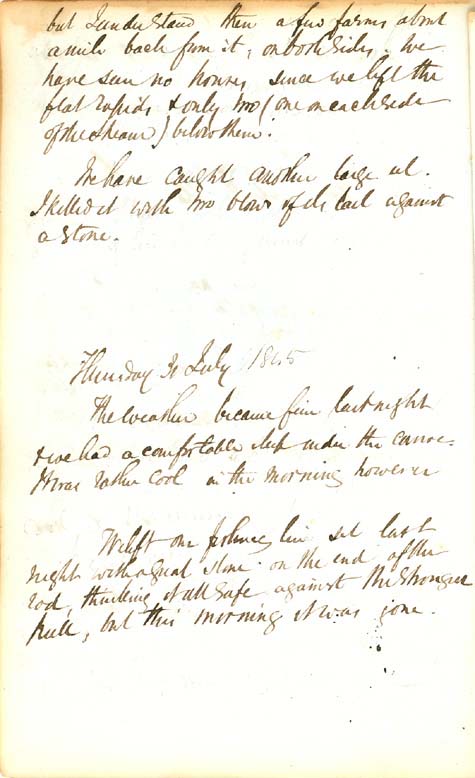 but I understand there a few farms about
a mile back from it, on both sides. We
have seen no houses since we left the
flat rapids & only two (one on each side
of the stream) below them.
We have caught another large eel.
I killed it with two blows of its tail against
a stone.
Thursday 31 July 1845
The weather became fine last night
& we had a comfortable sleep under the canoe.
It was rather cool in the morning however
We left one fishing line set last
night with a great stone on the end of the
rod, thinking it all safe against the strongest
pull, but this morning it was gone.